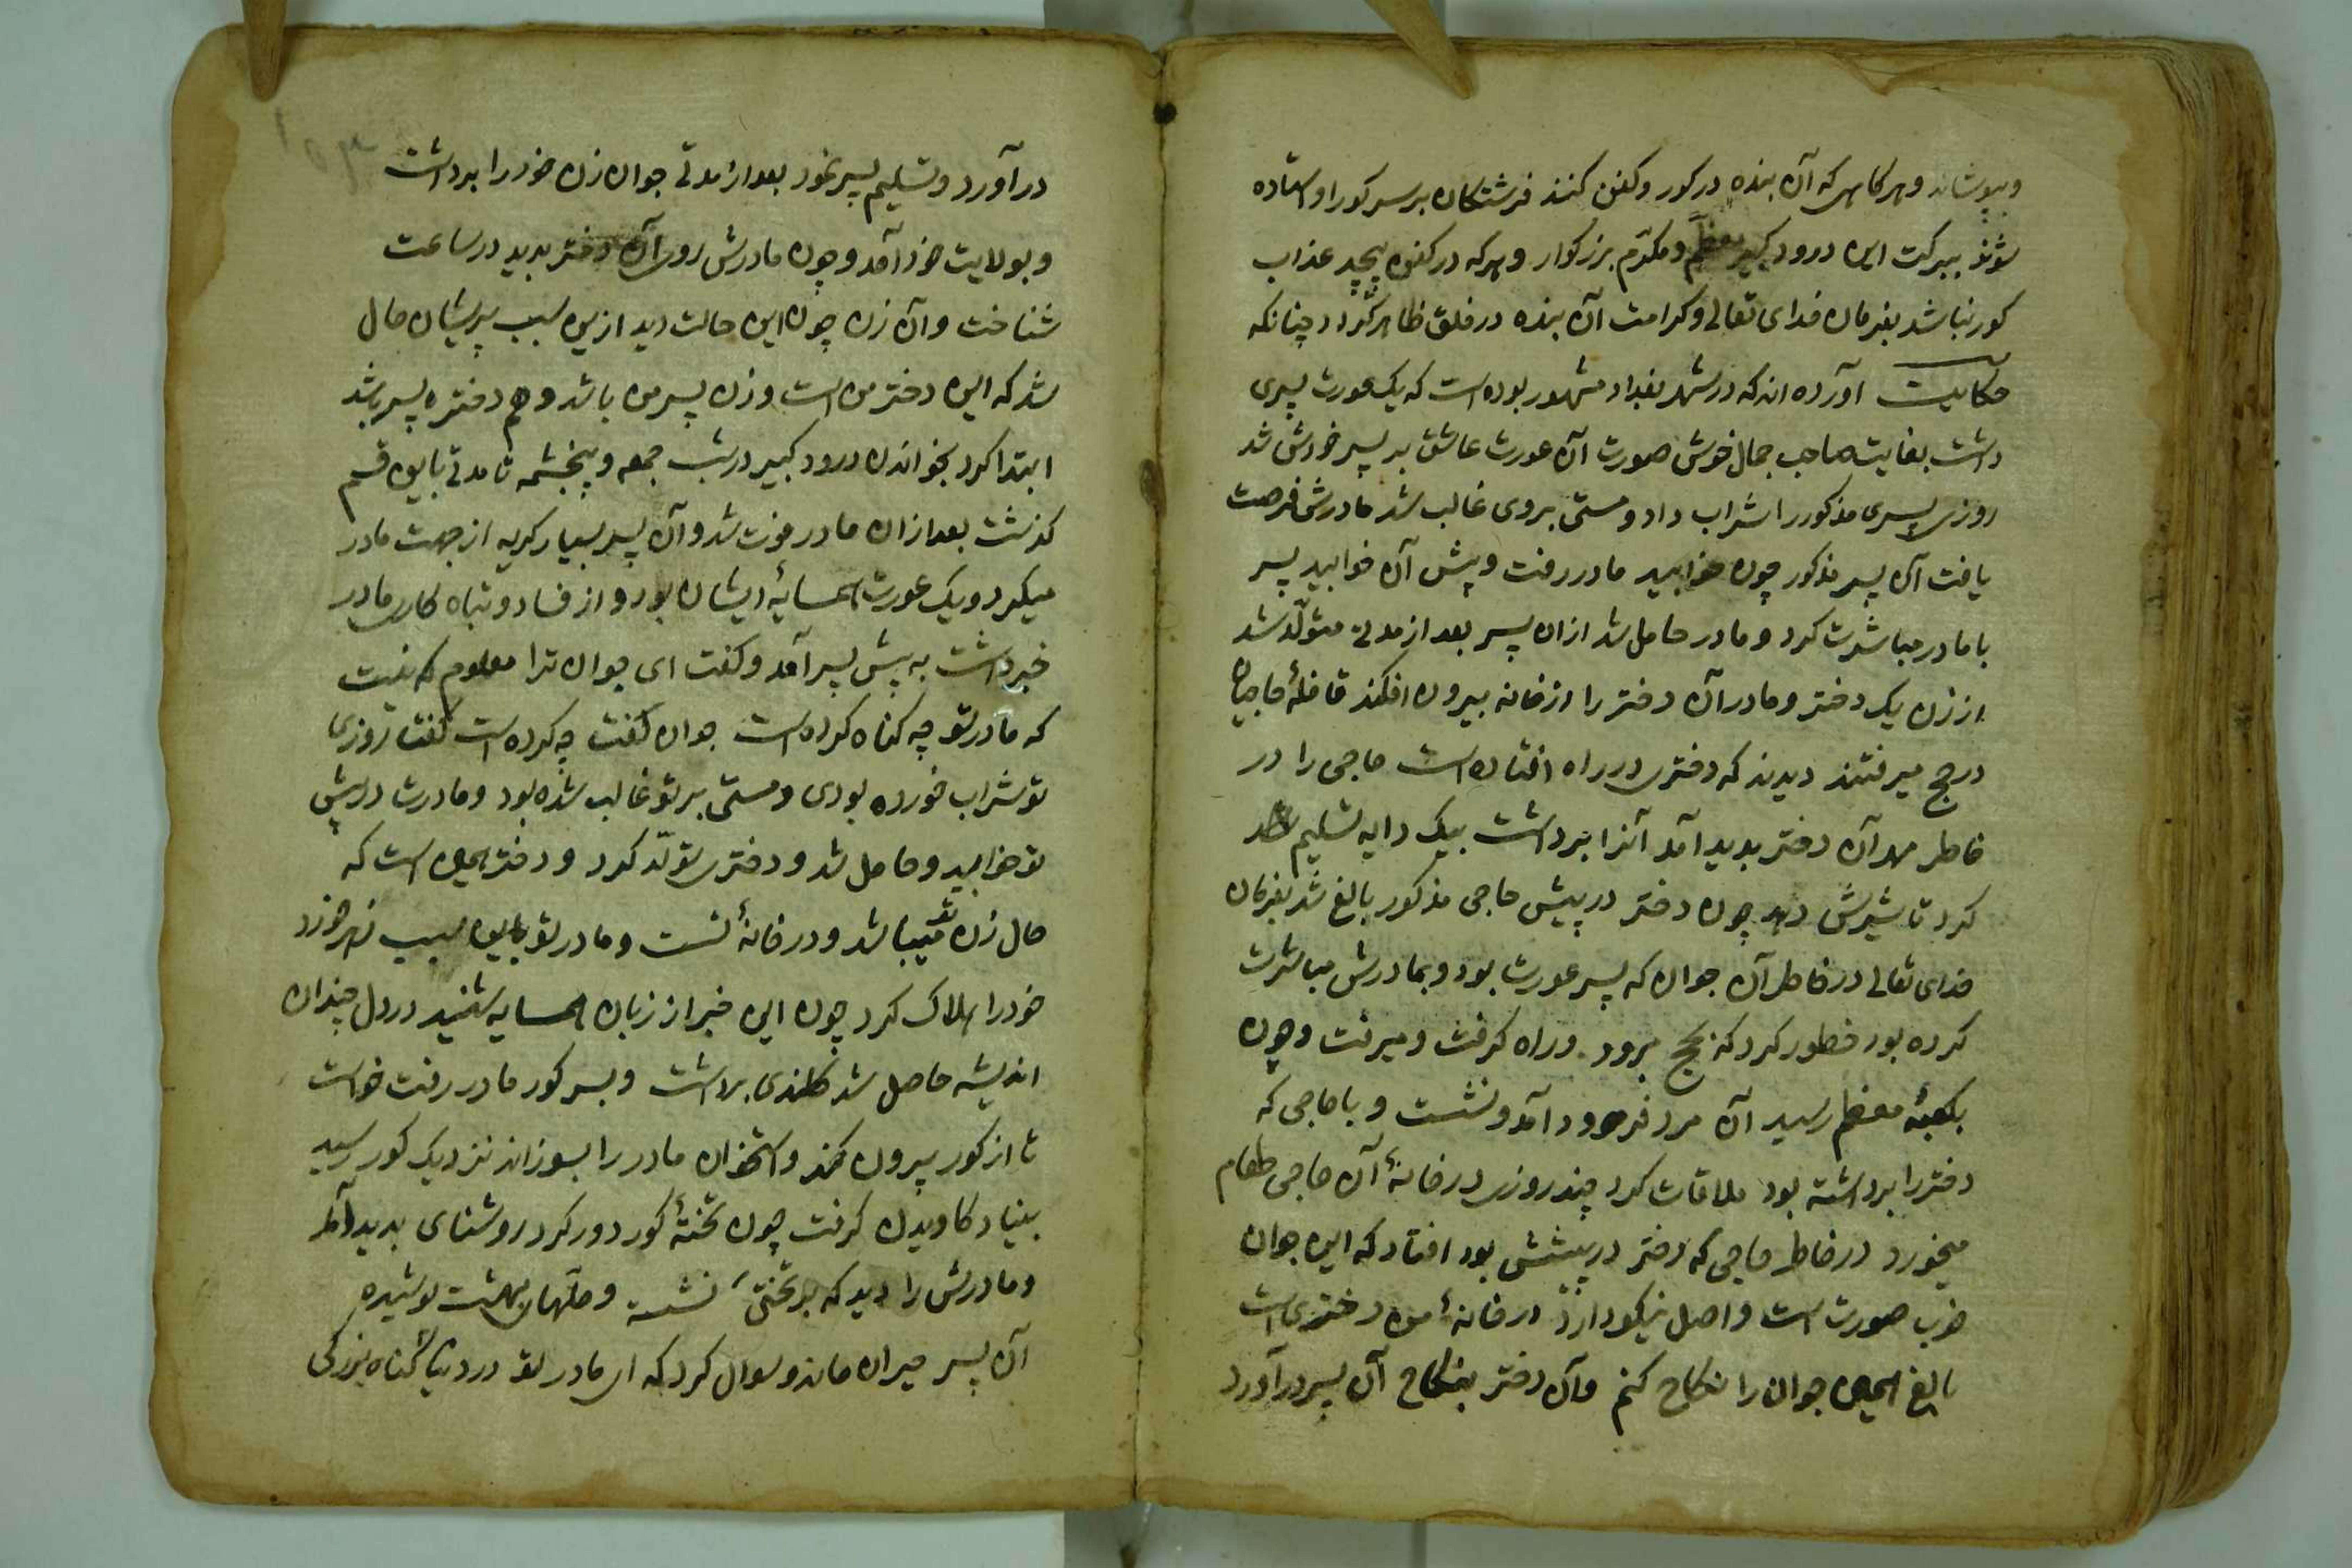 وبپوشاند و هرگاهی که آن بنده در کور و کفن کنند فرشتگان بر سر کور او استاده
شوند ببرکت این درود کبیر معظم و مکرّم بزرکوار و هرکه در کفن پیچد عذاب
کور نباشد بفرمان خدای تعالی و کرامت آن بنده در خلق ظاهر گردد چنانکه
حکایت آورده اند که در شهر بغداد مشهور بوده است که یک عورت پسری
داشت بغایت صاحب جمال خوش صورت آن عورت عاشق بر پسر خودش شد
روزی پسری مذکور را شراب داد و مستی بروی غالب شد مادرش فرصت
یافت آن پسر مذکور چون خوابید مادر رفت و پیش آن خوابید پسر
با مادر مباشرت کرد و مادر حامل شد ازان پسر بعد از مدتی متولّد شد
از زن یک دختر و مادر آن دختر را از خانه بیرون افکند قافلهٔ حاجیان
در حج میرفتند دیدند که دختری در راه افتاده است حاجی را در
خاطر مهر آن دختر بدید آمد آنرا برداشت بیک دایه تسلیم
کرد تا شیرش دهد چون دختر در پیش حاجی مذکور بالغ شد بفرمان
خدای تعالی در خاطر آن جوان که پسر عورت بود و بمادرش مباشرت
کرده بود خطور کرد که بحج برود و راه کرفت و میرفت و چون
بکعبهٔ معظم رسید آن مرد فرود آمد و نشست و با حاجی که
دختر را برداشته بود ملاقات کرد چند روزی در خانهٔ آن حاجی طعام
میخورد در خاطر حاجی که دختر در پیشش بود افتاد که این جوان
خوب صورت است و اصل نیکو دارد در خانهٔ من دختری است
بالغ همین جوان را نکاح کنم و آن دختر بنکاح آن پسر در آورد
در آورد و تسلیم پسر نمود بعد از مدتی جوان زن خود را برداشت
و بولایت خود آمد و چون مادرش روی آن دختر بدید در ساعت
شناخت و آن زن چون این حالت دید ازین سبب پریشان حال
شد که این دختر من است و زن پسر من باشد و هم دختره پسر باشد
ابتدا کرد بخواندن درود کبیر در شب جمعه و پنجشمه تا مدتی باین قسم
کذشت بعد ازان مادر فوت شد و آن پسر بسیار کریه از جهت مادر
میکرد و یک عورت همسایهٔ ایشان بود و از فساد و تباه کاری مادر
خبر داشت به پیش پسر آمد و کفت ای جوان ترا معلوم که نیت
که مادر تو چه کناه کرده است جوان کفت چه کرده است کفت روزی
تو شراب خورده بودی و مستی بر تو غالب شده بود و مادرت در پیش
تو خوابید و حامل شد و دختری تولّد کرد و دختر همین است که
حال زن تو میباشد و در خانهٔ تست و مادر تو باین سبب زهر خورد
خود را هلاک کرد چون این خبر از زبان همسایه شنید در دل چندان
اندیشه حاصل شد کلندی برداشت و بسر کور مادر رفت خواست
تا از کور بیرون کند و استخوان مادر را بسوزاند نزدیک کور رسید
بنیاد کاویدن کرفت چون تختهٔ کور دور کرد روشنای بدید آمد
و مادرش را دید که بر تختی نشسته و حلّهای بهشت پوشیده
آن پسر حیران ماند و سوال کرد که ای مادر تو در دنیا کناه بزرکی